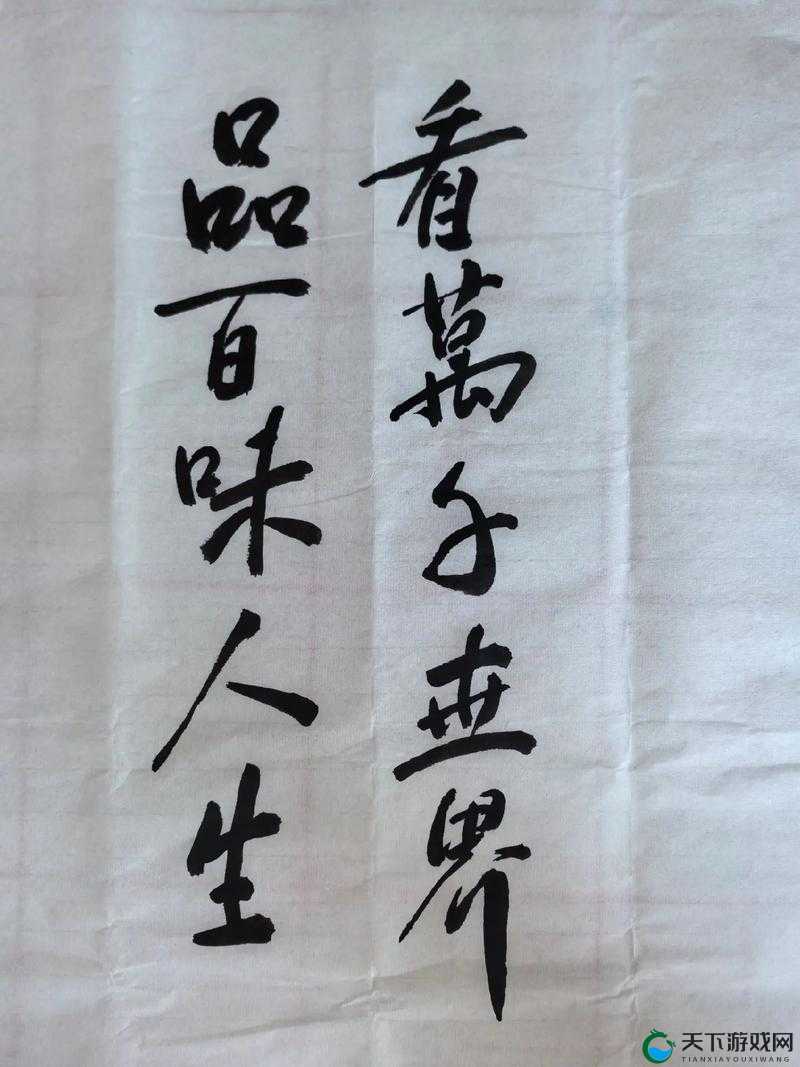 看萬千世界
品百味人生
天下游戏网
TIANXIAYOUXIWANG